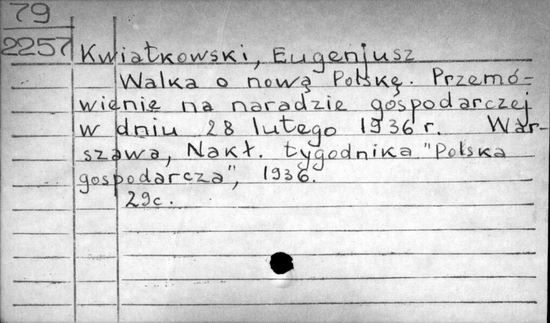 79
2257
Kwiatkowski, Eugenjusz
Walka o nową Polskę. Przemó-
wienie na naradzie gospodarczej
w dniu 28 lutego 1936 r. War-
szawa, Nakł. tygodnika "Polska
gospodarcza", 1936.
29c.